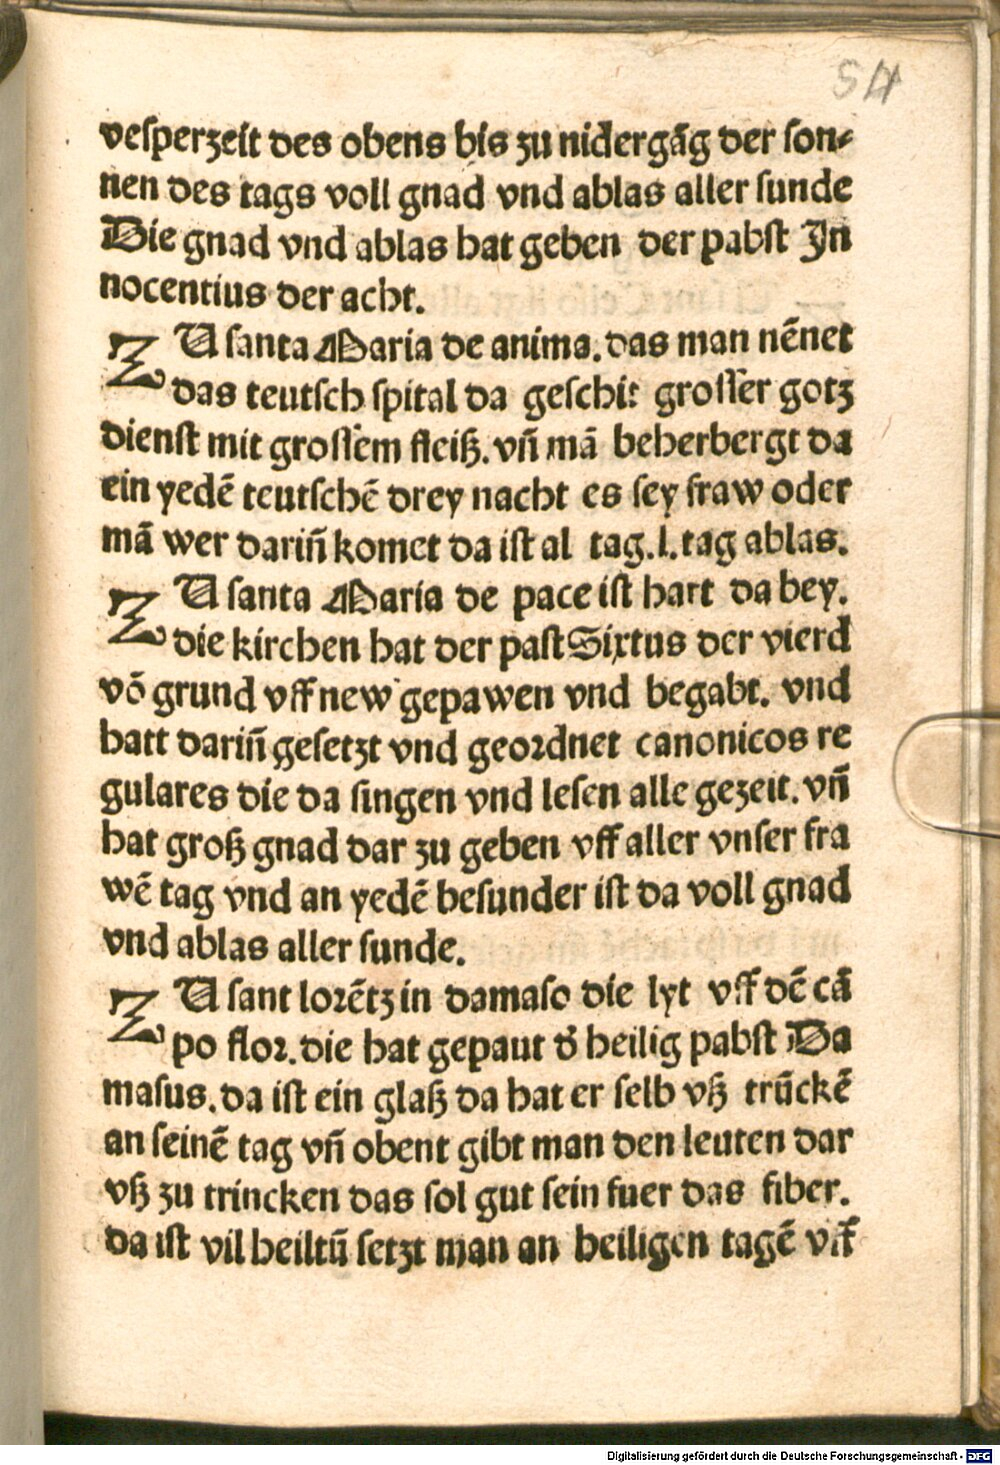 54
vesperzeit des obens bis zu nidergāg der son⸗
nen des tags voll gnad vnd ablas aller sunde
Die gnad vnd ablas hat geben der pabst In
nocentius der acht.
ZU santa Maria de anima. das man nēnet
das teutsch spital da geschit grosser gotz
dienst mit grossem fleiß. vn̄ mā beherbergt da
ein yedē teutschē drey nacht es sey fraw oder
mā wer darin̄ komet da ist al tag. l. tag ablas.
ZU santa Maria de pace ist hart da bey.
die kirchen hat der past Sixtus der vierd
vō grund vff new gepawen vnd begabt. vnd
hatt darin̄ gesetzt vnd geordnet canonicos re
gulares die da singen vnd lesen alle gezeit. vn̄
hat groß gnad dar zu geben vff aller vnser fra
wē tag vnd an yedē besunder ist da voll gnad
vnd ablas aller sunde.
ZU sant lorētz in damaso die lyt vff dē cā
po flor. die hat gepaut d̓ heilig pabst Da
masus. da ist ein glaß da hat er selb vß trūckē
an seinē tag vn̄ obent gibt man den leuten dar
vß zu trincken das sol gut sein fuer das fiber.
da ist vil heiltū setzt man an heiligen tagē vff
Digitalisierung gefördert durch die Deutsche Forschungsgemeinschaft - DFG